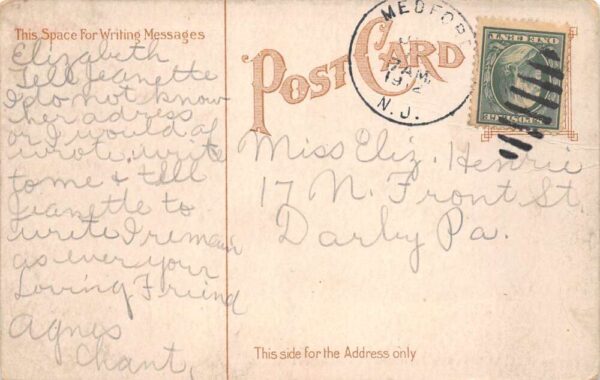 This Space For Writing Messages
Elizabeth
Tell Jeanette
I do not know
her adress
or I would of
wrote. write
to me & tell
Jeanette to
write I remain
as ever your
Loving Friend
Agnes
Chant,
POST CARD
MEDFORD
7 AM
1912
N. J.
ONE CENT
U.S. POSTAGE
Miss Eliz. Henrie
17 N. Front St.
Darby Pa.
This side for the Address only